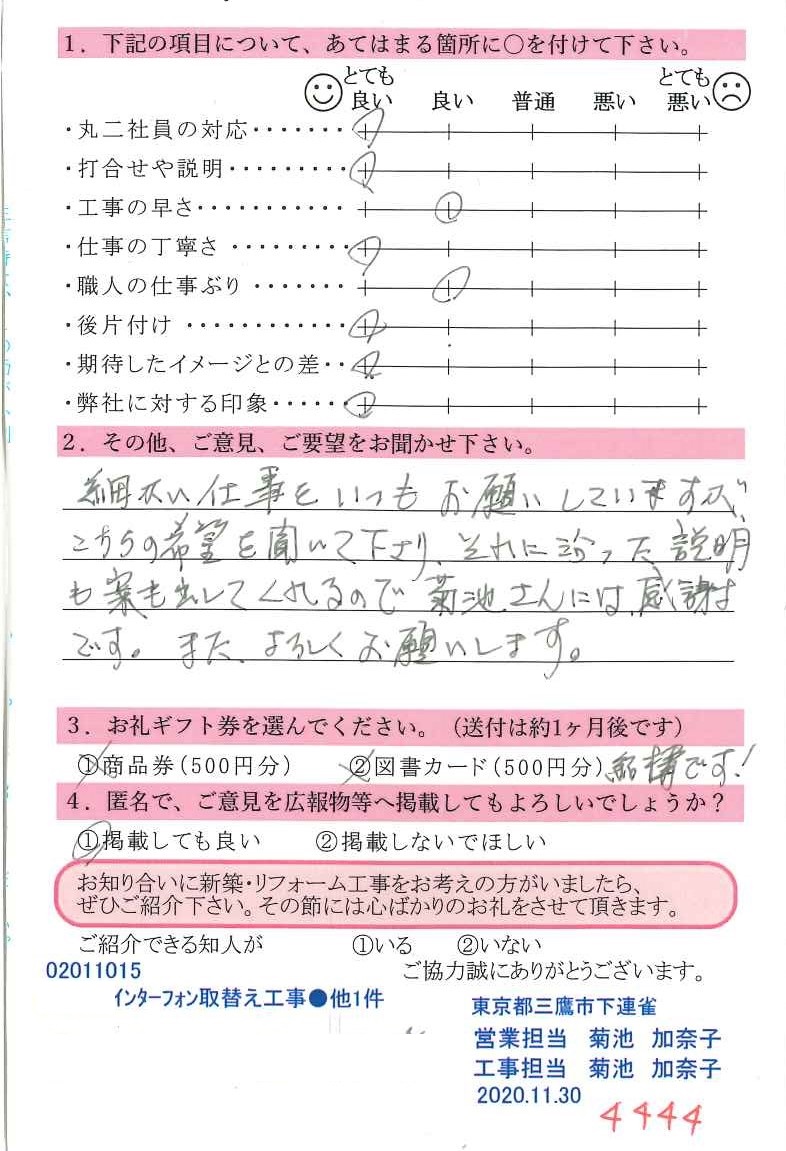 1. 下記の項目について、あてはまる箇所に○を付けて下さい。
とても良い 良い 普通 悪い とても悪い
・丸二社員の対応・・・・・・・
・打合せや説明・・・・・・・・
・工事の早さ・・・・・・・・・・
・仕事の丁寧さ・・・・・・・・
・職人の仕事ぶり・・・・・・・
・後片付け・・・・・・・・・・・
・期待したイメージとの差・・
・弊社に対する印象・・・・・
2. その他、ご意見、ご要望をお聞かせ下さい。
細かい仕事をいつもお願いしていますが、
こちらの希望を聞いて下さり、それに沿った説明
も案も出してくれるので菊池さんには、感謝
です。また、よろしくお願いします。
3. お礼ギフト券を選んでください。(送付は約1ヶ月後です)
①商品券(500円分) ②図書カード(500円分) 結構です!
4. 匿名で、ご意見を広報物等へ掲載してもよろしいでしょうか?
①掲載しても良い ②掲載しないでほしい
お知り合いに新築・リフォーム工事をお考えの方がいましたら、
ぜひご紹介下さい。その節には心ばかりのお礼をさせて頂きます。
ご紹介できる知人が ①いる ②いない
02011015
ご協力誠にありがとうございます。
インターフォン取替え工事●他1件
東京都三鷹市下連雀
営業担当 菊池 加奈子
工事担当 菊池 加奈子
2020.11.30
4444